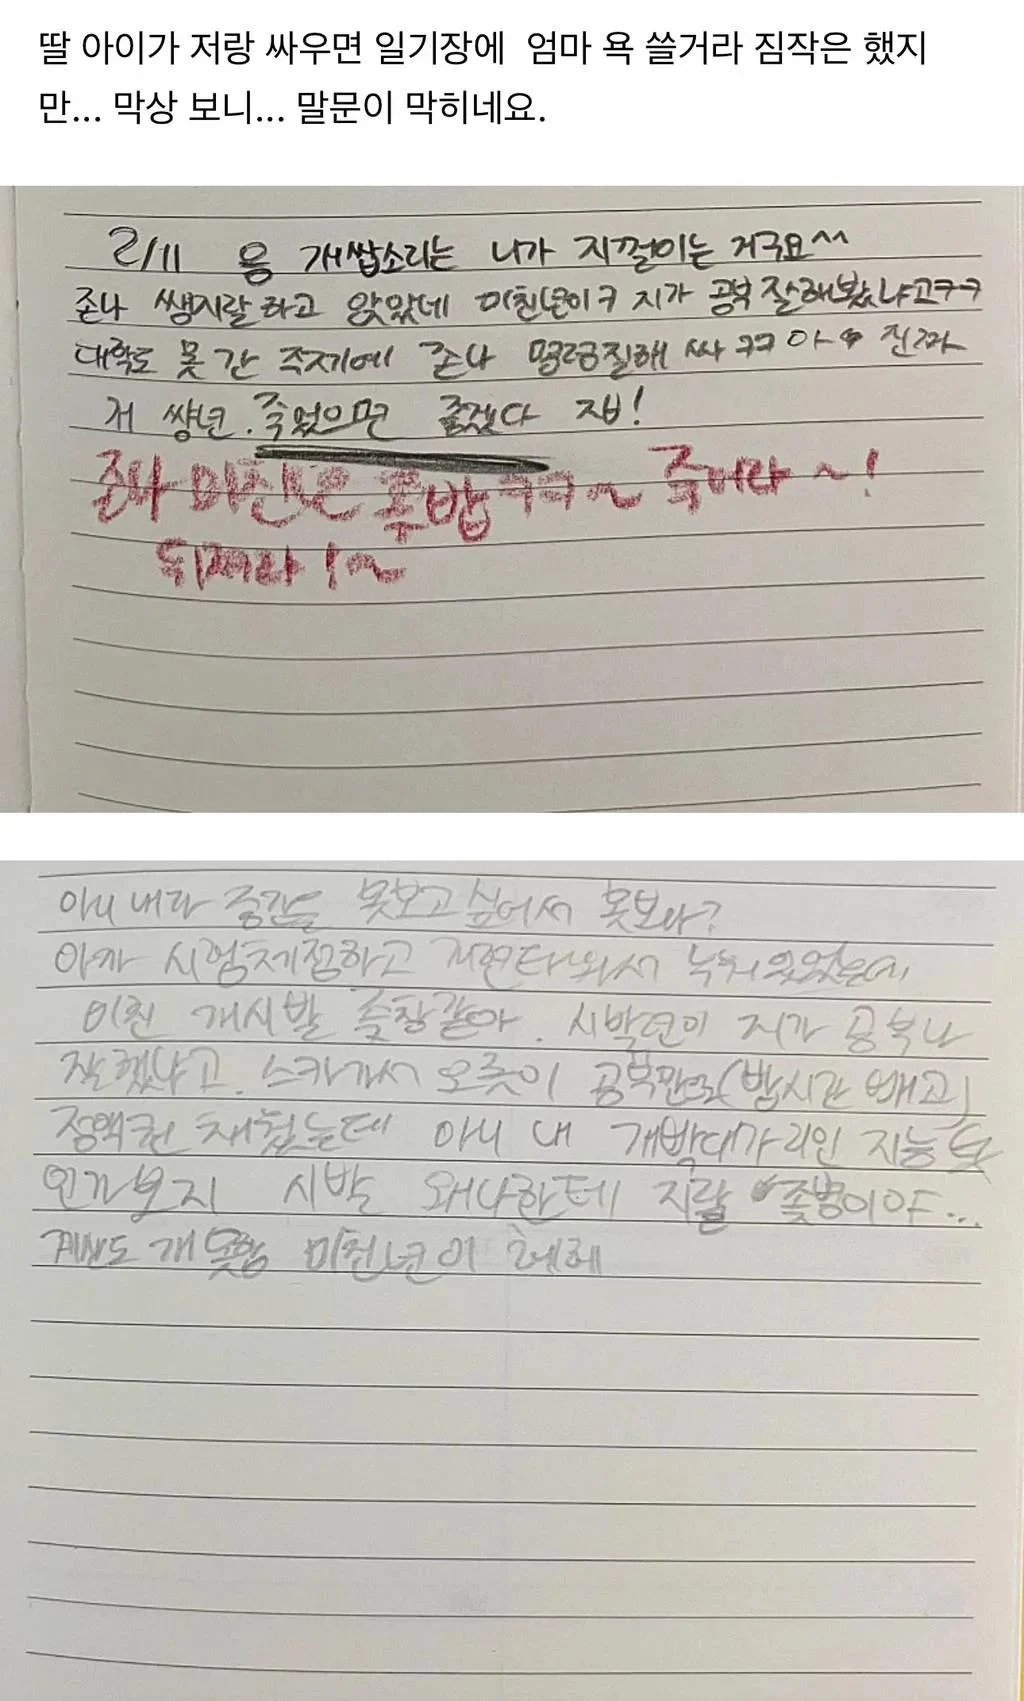 딸 아이가 저랑 싸우면 일기장에 엄마 욕 쓸거라 짐작은 했지
만... 막상 보니... 말문이 막히네요.
2/11 응 개쌉소리는 니가 지껄이는 거구요^^
존나 쌩지랄하고 앉았네 미친년이ㅋ 지가 공부 잘해봤냐고ㅋㅋ
대학도 못 간 주제에 존나 명령질해 싸ㅋㅋ 아 진짜
저 썅년. 죽었으면 좋겠다 자!
존나 미친년 좆밥 ㅋㅋ~ 죽어라~!
뒤져라!~
아니 내가 중간을 못보고싶어서 못보나?
아까 시험채점하고 현타와서 누워있었는데
미친 개시발 좆창같아. 시박년이 지가 공부나
잘했냐고. 스카가서 오롯이 공부만으로(밥시간 빼고)
정액권 채웠는데 아니 내 개빡대가리인 지능
인가보지 시발 왜나한테 지랄 좆병이야...
계산도 개못함 미친년이 헤헤